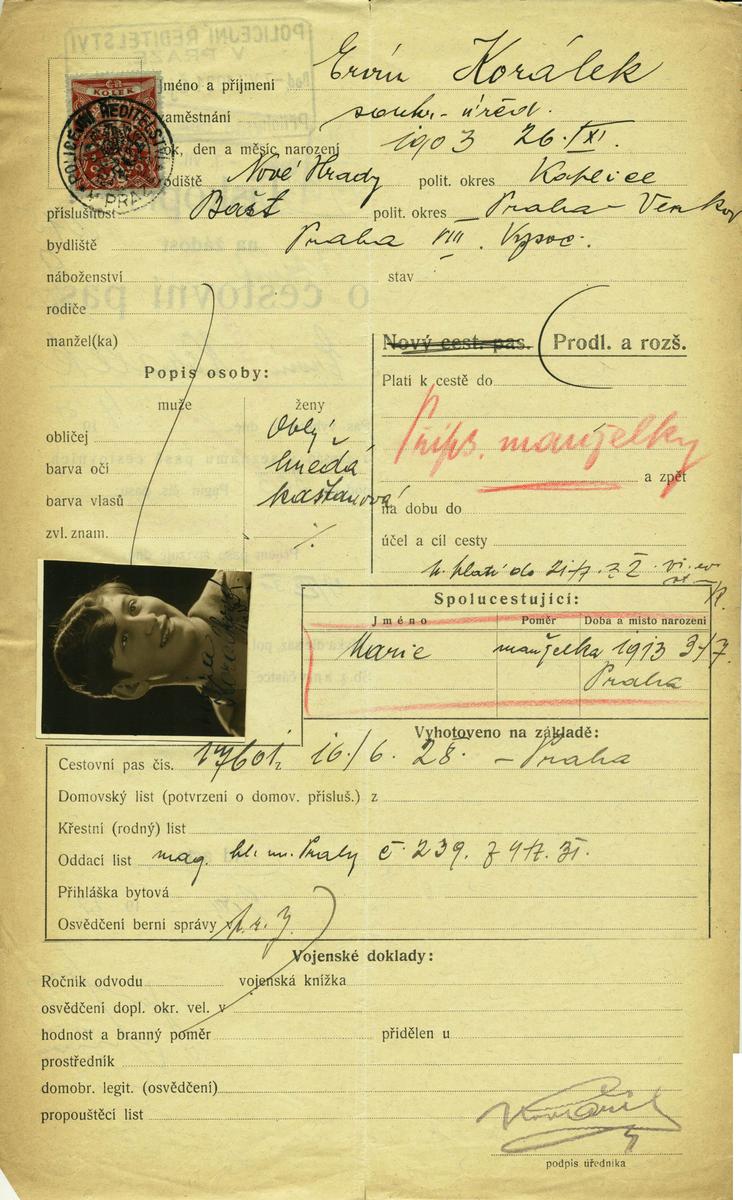 POLICEJNÍ ŘEDITELSTVÍ
V PRAZE
KOLEK
POLICEJNÍ ŘEDITELSTVÍ
V PRAZE
Jméno a příjmení Ervín Korálek
zaměstnání soukr. úřed.
rok, den a měsíc narození 1903 26. XI.
rodiště Nové Hrady polit. okres Kaplice
příslušnost Bášť polit. okres Praha - Venkov
bydliště Praha VIII. Vysoč.
náboženství stav
rodiče
manžel(ka)
Nový cest. pas. Prodl. a rozš.
Popis osoby:
Platí k cestě do
muže ženy
obličej oblý
Přips. manželky
barva očí hnědá
a zpět
barva vlasů kaštanová
na dobu do
zvl. znam. ·/·
účel a cíl cesty
Spolucestující:
Jméno Poměr Doba a místo narození
Marie manželka 1913 3/7.
Praha
Vyhotoveno na základě:
Cestovní pas čís. 16/6. 28. - Praha
Domovský list (potvrzení o domov. přísluš.) z
Křestní (rodný) list
Oddací list mag. hl. m. Prahy č. 239. z
Přihláška bytová
Osvědčení berní správy
Vojenské doklady:
Ročník odvodu vojenská knížka
osvědčení dopl. okr. vel. v
hodnost a branný poměr přidělen u
prostředník
domobr. legit. (osvědčení)
propouštěcí list
podpis úředníka